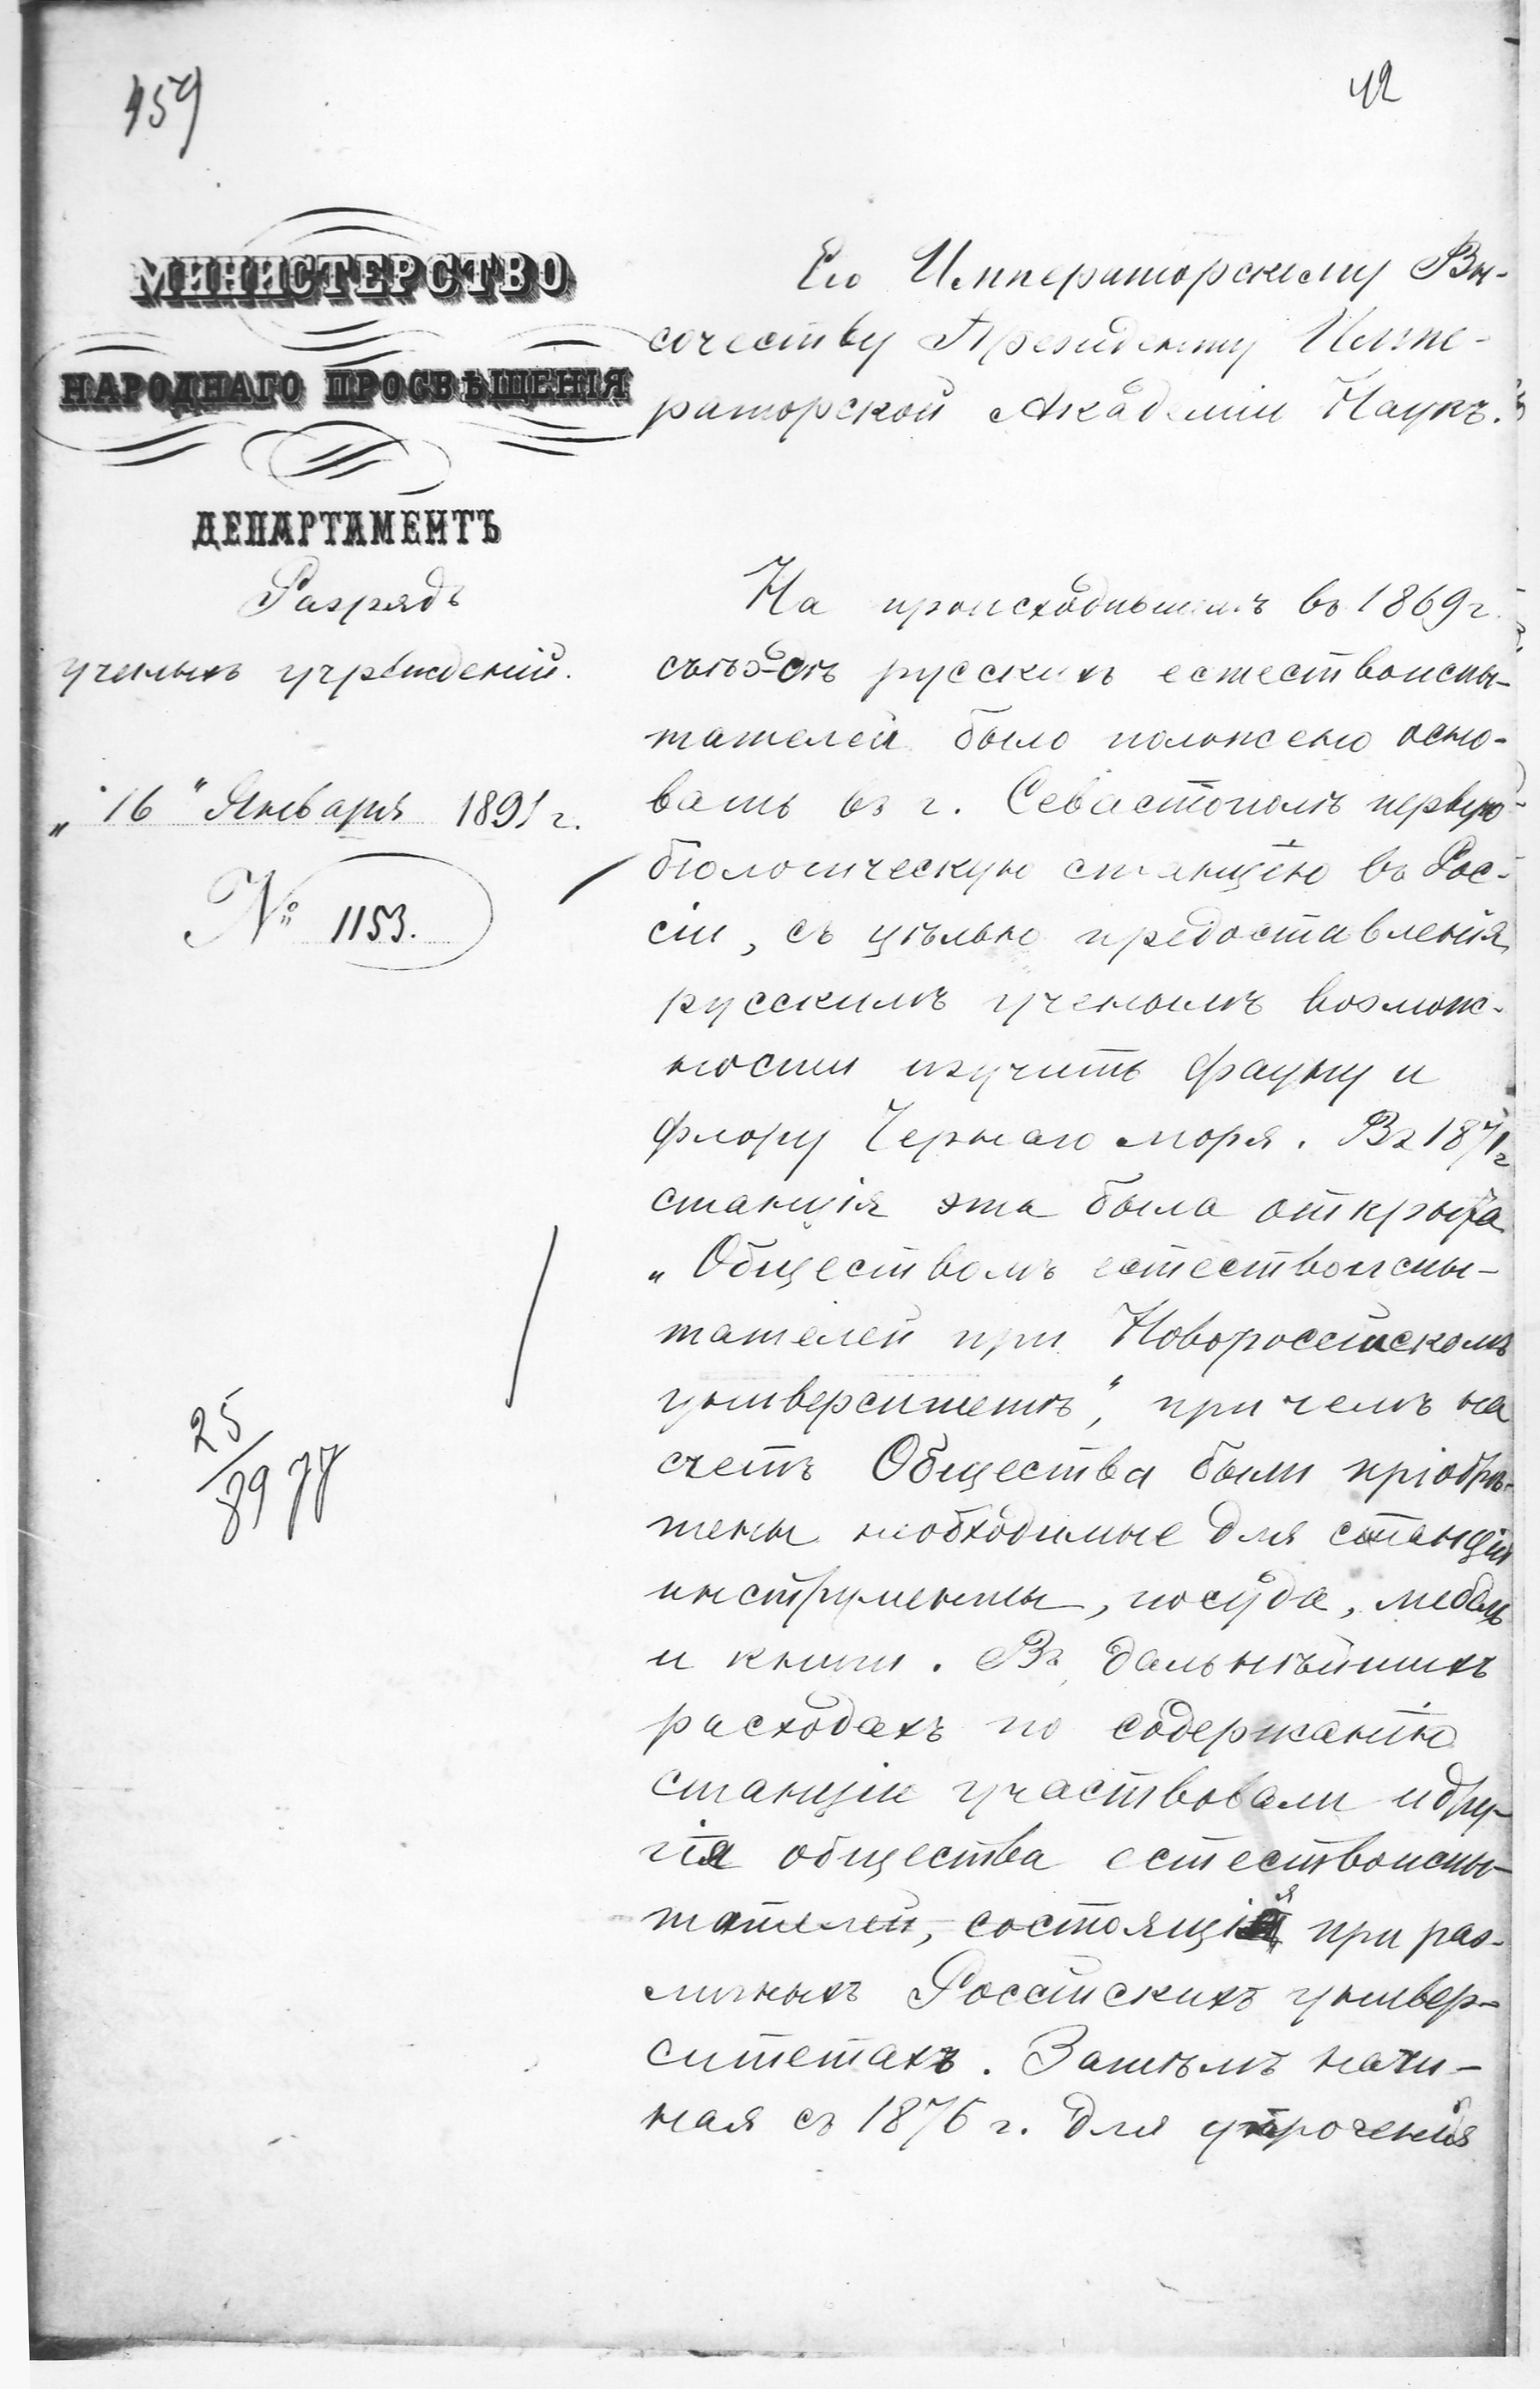 459
42
МИНИСТЕРСТВО
НАРОДНАГО ПРОСВѢЩЕНІЯ
ДЕПАРТАМЕНТЪ
Разрядъ
ученыхъ учрежденій.
„16" Января 1891 г.
№ 1153.
25
89
Его Императорскому Вы-
сочеству Президенту Импе-
раторской Академіи Наукъ.
На происходившемъ въ 1869 г.
съѣздѣ русскихъ естествоиспы-
тателей было положено осно-
вать въ г. Севастополѣ первую
біологическую станцію въ Рос-
сіи, съ цѣлью предоставленія
русскимъ ученымъ возмож-
ности изучить фауну и
флору Чернаго моря. Въ 1871 г
станція эта была открыта
„Обществомъ естествоиспы-
тателей при Новороссійскомъ
университетѣ", при чемъ на
счетъ Общества были пріобрѣ-
тены необходимые для станціи
инструменты, посуда, мебель
и книги. Въ дальнѣйшихъ
расходахъ по содержанію
станціи участвовали и дру-
гія общества естествоиспы-
тателей, состоящія при раз-
личныхъ Россійскихъ универ-
ситетахъ. Затѣмъ начи-
ная съ 1876 г. для упроченія